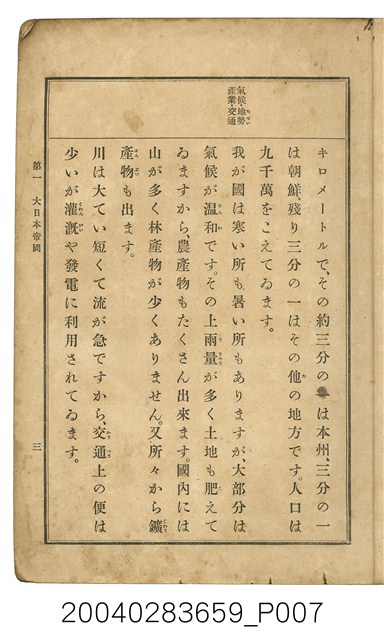 氣候・地勢
産業・交通
キロメートルで、その約三分の一は本州、三分の一
は朝鮮、殘り三分の一はその他の地方です。人口は
九千萬をこえてゐます。
我が國は寒い所も暑い所もありますが、大部分は
氣候が温和です。その上雨量が多く土地も肥えて
ゐますから、農產物もたくさん出來ます。國內には
山が多く林產物が少くありません。又所々から鑛
產物も出ます。
川は大てい短くて流が急ですから、交通上の便は
少いが灌漑や發電に利用されてゐます。
第一 大日本帝國
三
20040283659_P007